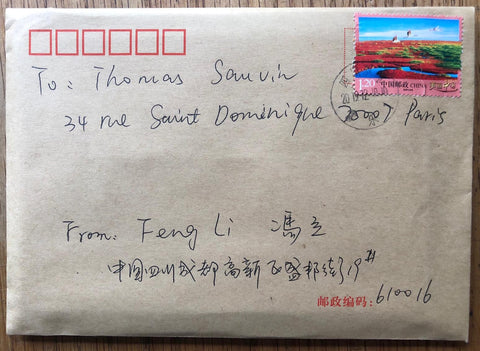 1.20元 中国邮政 CHINA
To: Thomas Sauvin
34 rue Saint Dominique 75007 Paris
From: Feng Li 冯立
中国四川成都高新区盛邦街19#
邮政编码: 610016